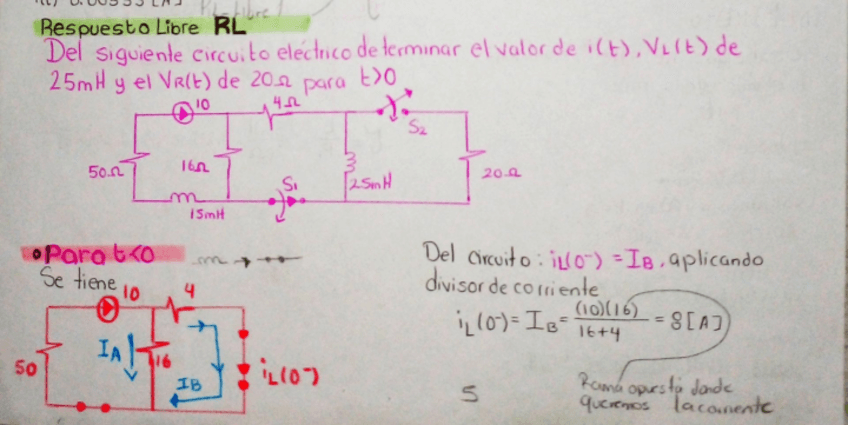 Respuesto Libre RL
Del siguiente circuito eléctrico determinar el valor de i(t), VL(t) de
25mH y el VR(t) de 20Ω para t>0
10
4Ω
S2
50Ω
16Ω
25mH
20Ω
S1
15mH
•Para t<0
Se tiene
10
4
IA
16
50
IB
iL(0-)
Del circuito: iL(0-) = IB, aplicando
divisor de corriente
iL(0-) = IB = (10)(16) / 16+4 = 8[A]
5
Rama opuesta donde
queremos la corriente